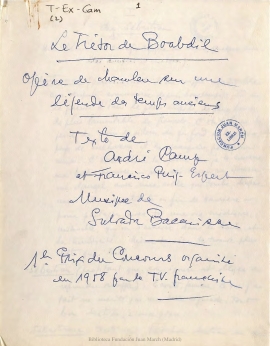 T-Ex-Cam
(2)
1
Le Trésor de Boabdil
Opéra de chambre sur une
légende des temps anciens
Texte de
André Camp
et Francisco Puig Espert
Musique de
Salvador Bacarisse
1er Prix du Concours organisé
en 1958 par la T.V. française
Biblioteca Fundación Juan March (Madrid)